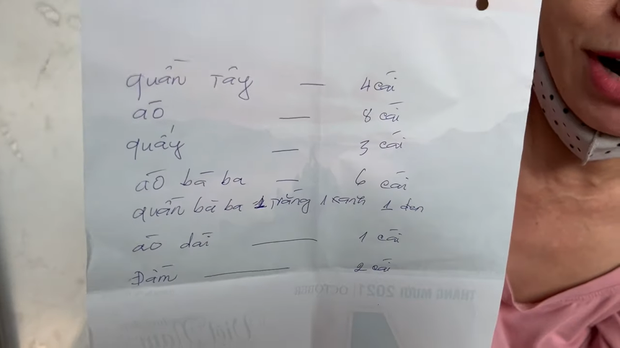 quần Tây — 4 cái
áo — 8 cái
quấy — 3 cái
áo bà ba — 6 cái
quần bà ba 1 trắng 1 xanh 1 đen
áo dài — 1 cái
Đầm — 2 cái
THÁNG MƯỜI 2021 OCTOBER
Việt Nam